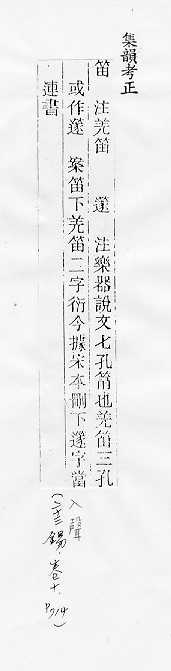 集韻考正
笛　注羌笛　篴　注樂器說文七孔筩也羌笛三孔
或作篴　案笛下羌笛二字衍今據宋本刪下篴字當
連書
入聲
(二十三錫．卷十．
P714)